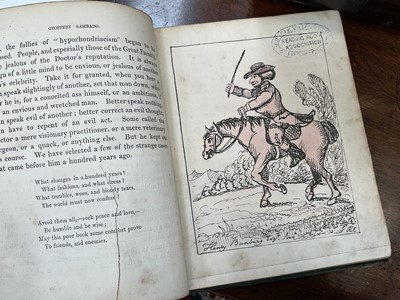 GEOFFERY GAMBADO.
the follies of "hypochondriacism" began to
posed: People, and especially those of the Great F
jealous of the Doctor's reputation. It is alw
ign of a little mind to be envious, or jealous of anoth
n's celebrity. Take it for granted, when you hear
speak slightingly of another, set that man down, wh
r he is, for a conceited ass himself, or an ambitious,
an envious and wretched man. Better speak nothing
n speak evil of another; better correct an evil thought
n have to repent of an evil act. Some called the
ctor a mere visionary practitioner, or a mere veterinary
rgeon, or a quack, or anything else. But he kept
s course. We have selected a few of the strange cases
at came before him a hundred years ago.
What changes in a hundred years!
What fashions, and what dress!
What troubles, woes, and bloody tears,
The world must now confess!
Avoid them all,—seek peace and love,—
Be humble and be wise;
May this poor book some comfort prove
To friends, and enemies.
READING
ASSOCIATION
Henry Bunbury Esq